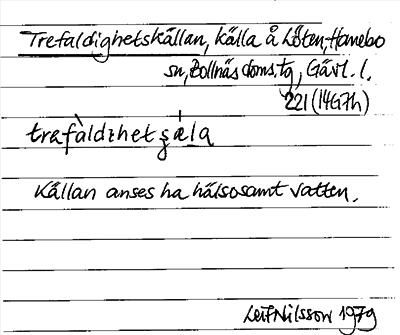 Trefaldighetskällan, källa å Löten, Hanebo
sn, Bollnäs doms. tg, Gävl. l.
221 (14G7h)
trafàldıhetşǽla
Källan anses ha hälsosamt vatten.
Leif Nilsson 1979